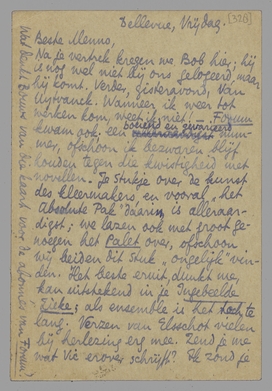 Bellevue, Vrijdag.
(320)
Beste Menno,
Na je vertrek kregen we Bob hier; hij
is nog wel niet bij ons gelogeerd, maar
hij komt. Verder, gisteravond, Van
Uytvanck. Wanneer ik weer tot
werken kom, weet ik niet! — Forum
kwam ook; een boeiend en gevarieerd num-
mer, ofschoon ik bezwaren blijf
houden tegen die kwistigheid met
novellen. Je stukje over de kunst
des kleermakers, en vooral "het
Absolute Pak" daarin, is alleraar-
digst; we lazen ook met groot ge-
noegen het Palet over, ofschoon
wij beiden dit stuk "ongelijk" vin-
den. Het beste eruit, dunkt me,
kan uitstekend in je Ingebeelde
Zieke; als ensemble is het toch te
lang. Verzen van Elsschot vielen
bij herlezing erg mee. Zend je me
wat Vic erover schrijft? Ik zond je
Wat denkt Bouws van die kaart voor de abonnés van Forum?